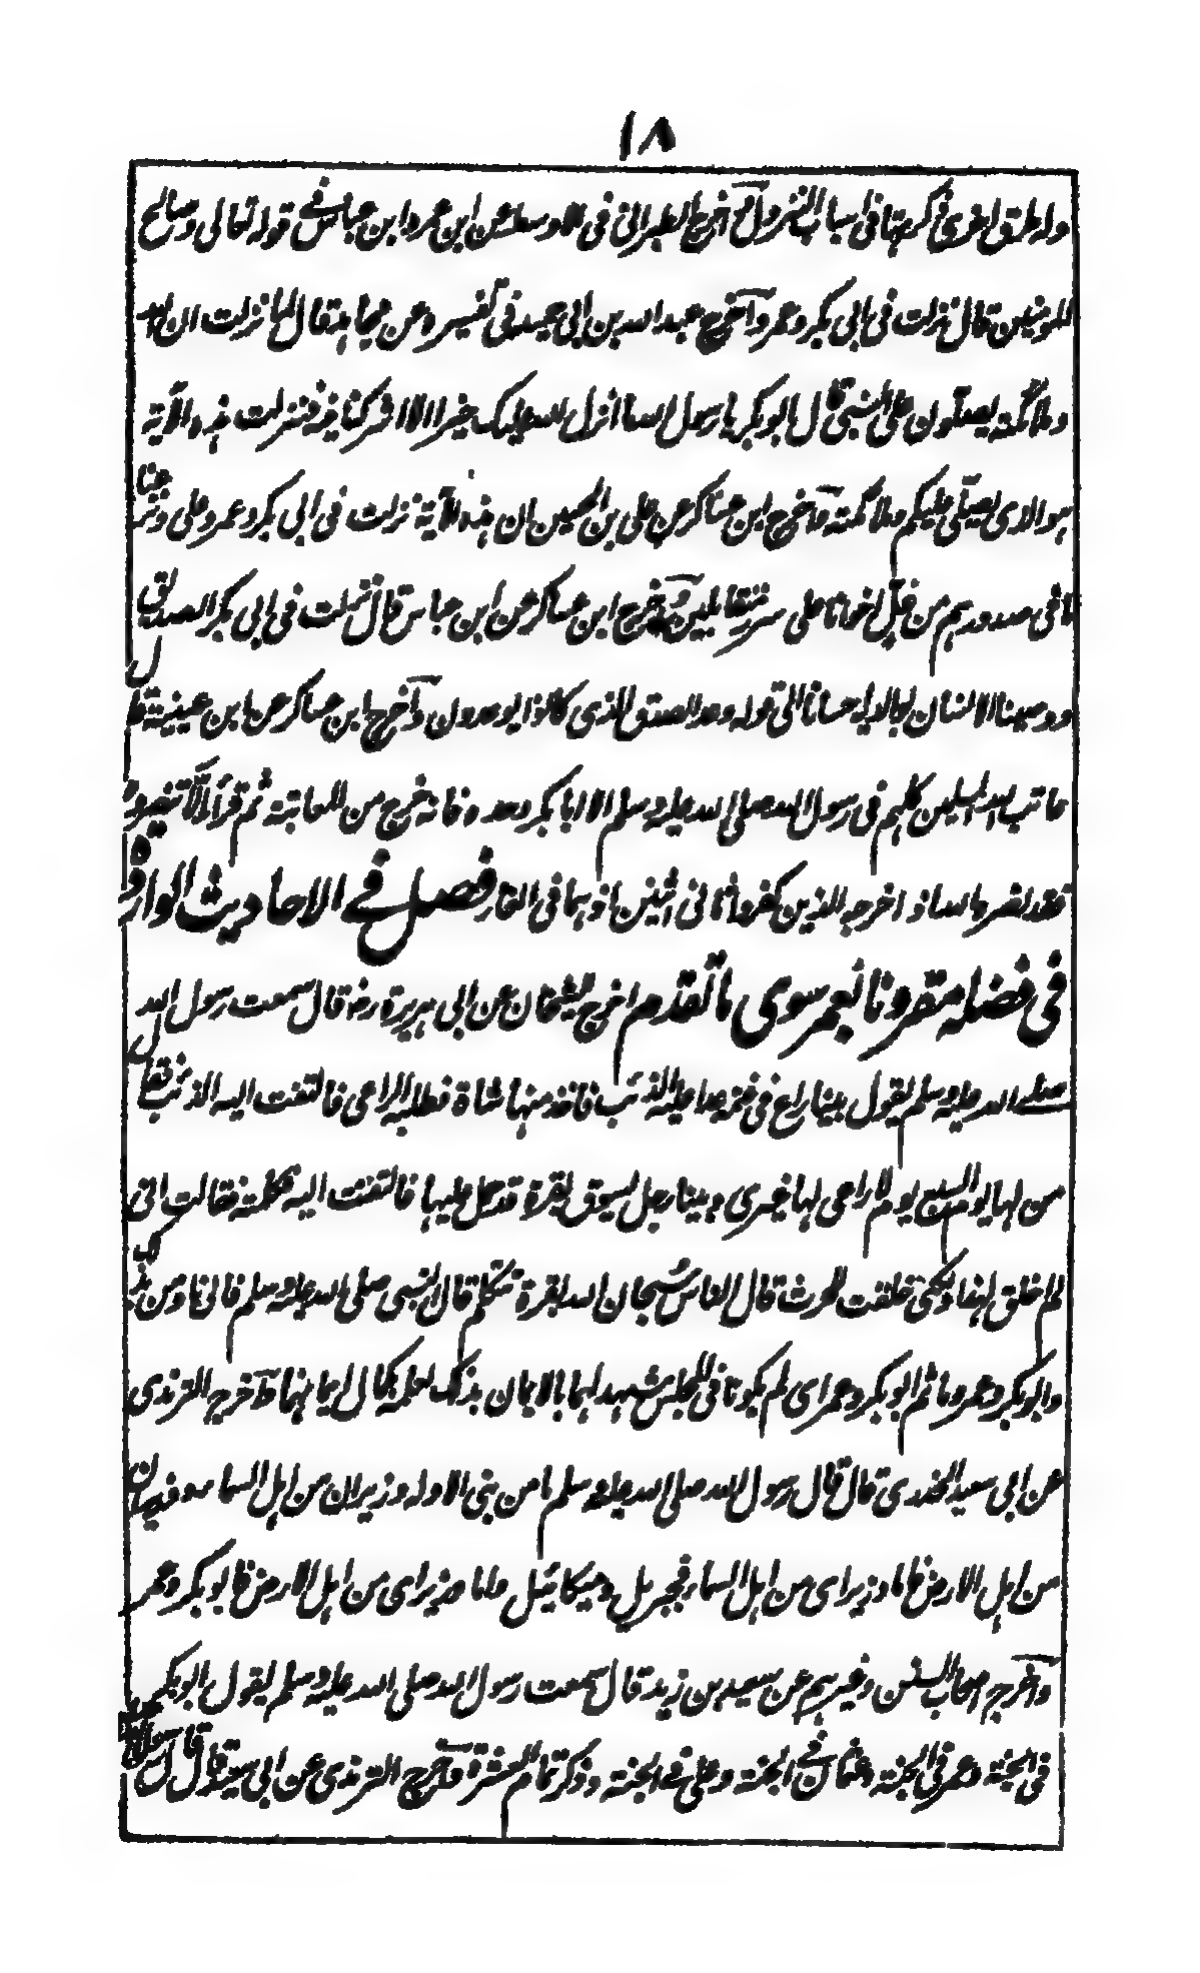 ١٨
وله طرق اخرى ذكرتها فى اسباب النزول واخرج الطبرانى فى الاوسط عن ابن عمر وابن عباس فى قوله تعالى وصالح
المومنين قال نزلت فى ابى بكر وعمر واخرج عبد الله بن ابى حميد فى تفسيره عن مجاهد قال لما نزلت ان الله
وملائكته يصلون على النبى قال ابو بكر يا رسول الله ما انزل الله عليك خيرا الا اشركنا فيه فنزلت هذه الآية
هو الذى يصلى عليكم وملائكته واخرج ابن عساكر عن على بن الحسين ان هذه الآية نزلت فى ابى بكر وعمر وعلى ونزعنا
ما فى صدورهم من غل اخوانا على سرر متقابلين واخرج ابن عساكر عن ابن عباس قال نزلت فى ابى بكر الصديق
ووصينا الانسان بوالديه احسانا الى قوله وعد الصدق الذى كانوا يوعدون واخرج ابن عساكر عن ابن عيينة قال
عاتب الله المسلمين كلهم فى رسول الله صلى الله عليه وسلم الا ابا بكر وحده فانه خرج من المعاتبة ثم قرأ الا تنصروه
فقد نصره الله اذ اخرجه الذين كفروا ثانى اثنين اذ هما فى الغار فصل فى الاحاديث الواردة
فى فضله مقرونا بعمر سوى ما تقدم اخرج الشيخان عن ابى هريرة رض قال سمعت رسول الله
صلى الله عليه وسلم يقول بينا راع فى غنمه عدا عليه الذئب فاخذ منها شاة فطلبه الراعى فالتفت اليه الذئب فقال
من لها يوم السبع يوم لا راعى لها غيرى وبينا رجل يسوق بقرة قد حمل عليها فالتفتت اليه فكلمته فقالت انى
لم اخلق لهذا ولكنى خلقت للحرث قال الناس سبحان الله بقرة تتكلم قال النبى صلى الله عليه وسلم فانى اومن بذلك
وابو بكر وعمر وما ثم ابو بكر وعمر اى لم يكونا فى المجلس شهد لهما بالايمان بذلك لعلمه بكمال ايمانهما واخرج الترمذى
عن ابى سعيد الخدرى قال قال رسول الله صلى الله عليه وسلم ما من نبى الا وله وزيران من اهل السماء ووزيران
من اهل الارض فاما وزيراى من اهل السماء فجبريل وميكائيل واما وزيراى من اهل الارض فابو بكر وعمر
واخرج اصحاب السنن وغيرهم عن سعيد بن زيد قال سمعت رسول الله صلى الله عليه وسلم يقول ابو بكر
فى الجنة وعمر فى الجنة وعثمان فى الجنة وعلى فى الجنة وذكر تمام العشرة واخرج الترمذى عن ابى سعيد قال قال